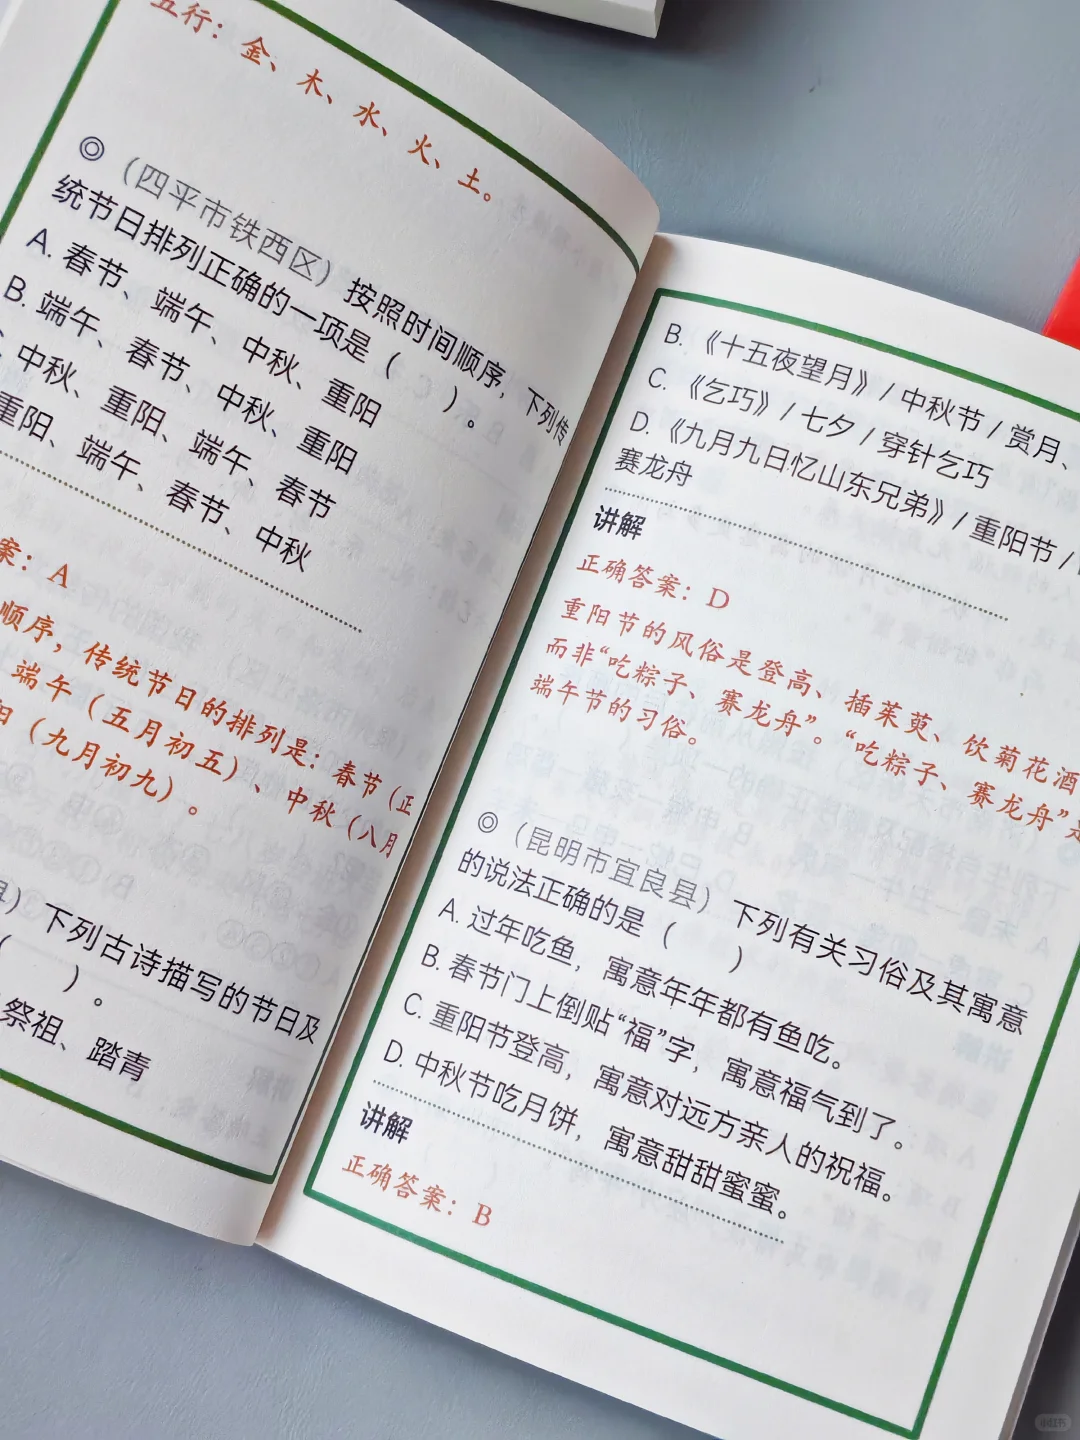 五行：金、木、水、火、土。
◎（四平市铁西区）按照时间顺序，下列传
统节日排列正确的一项是（　　）。
A. 春节、端午、中秋、重阳
B. 端午、春节、中秋、重阳
中秋、重阳、端午、春节
重阳、端午、春节、中秋
案：A
顺序，传统节日的排列是：春节（正
端午（五月初五）、中秋（八月
阳（九月初九）。
县）下列古诗描写的节日及
（　　）。
祭祖、踏青
B.《十五夜望月》/ 中秋节 / 赏月、
C.《乞巧》/ 七夕 / 穿针乞巧
D.《九月九日忆山东兄弟》/ 重阳节 /
赛龙舟
讲解
正确答案：D
重阳节的风俗是登高、插茱萸、饮菊花酒
而非“吃粽子、赛龙舟”。“吃粽子、赛龙舟”是
端午节的习俗。
◎（昆明市宜良县）下列有关习俗及其寓意
的说法正确的是（　　）
A. 过年吃鱼，寓意年年都有鱼吃。
B. 春节门上倒贴“福”字，寓意福气到了。
C. 重阳节登高，寓意对远方亲人的祝福。
D. 中秋节吃月饼，寓意甜甜蜜蜜。
讲解
正确答案：B